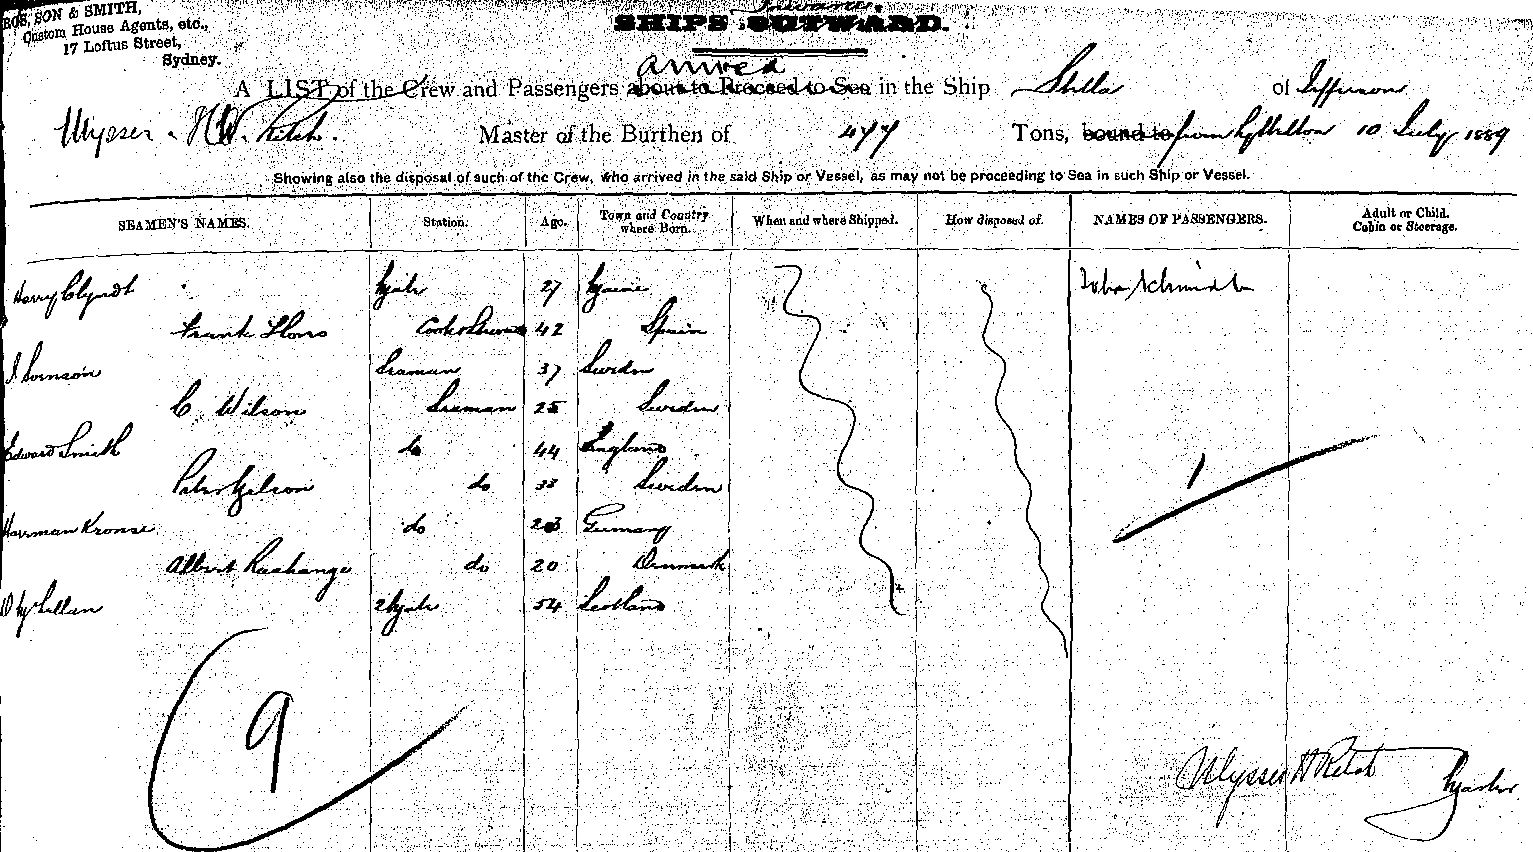 SON & SMITH,
Custom House Agents, etc.,
17 Loftus Street,
Sydney.
Inwards.
SHIPS OUTWARD.
arrived
A LIST of the Crew and Passengers about to Proceed to Sea in the Ship Stella of Jefferson
Ulysses Master of the Burthen of 477 Tons, bound to from Lyttelton 10 July 1889
Showing also the disposal of such of the Crew, who arrived in the said Ship or Vessel, as may not be proceeding to Sea in such Ship or Vessel.
SEAMEN'S NAMES. Station. Age. Town and Country where Born. When and where Shipped. How disposed of. NAMES OF PASSENGERS. Adult or Child. Cabin or Steerage.
Harry Mate 27 Maine John Schmidt
Frank Cook & Steward 42 Spain
Seaman 37 Sweden
C Wilson Seaman 25 Sweden
Edward Smith do 44 England
Peter do 33 Sweden
Harrman do Germany
Albert do 20 Denmark
2 Mate 54 Scotland
1
9
Ulysses Master